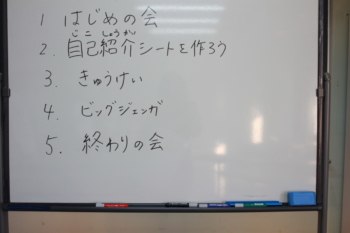 1 はじめの会
じこしょうかい
2. 自己紹介シートを作ろう
3. きゅうけい
4. ビッグジェンガ
5. 終わりの会